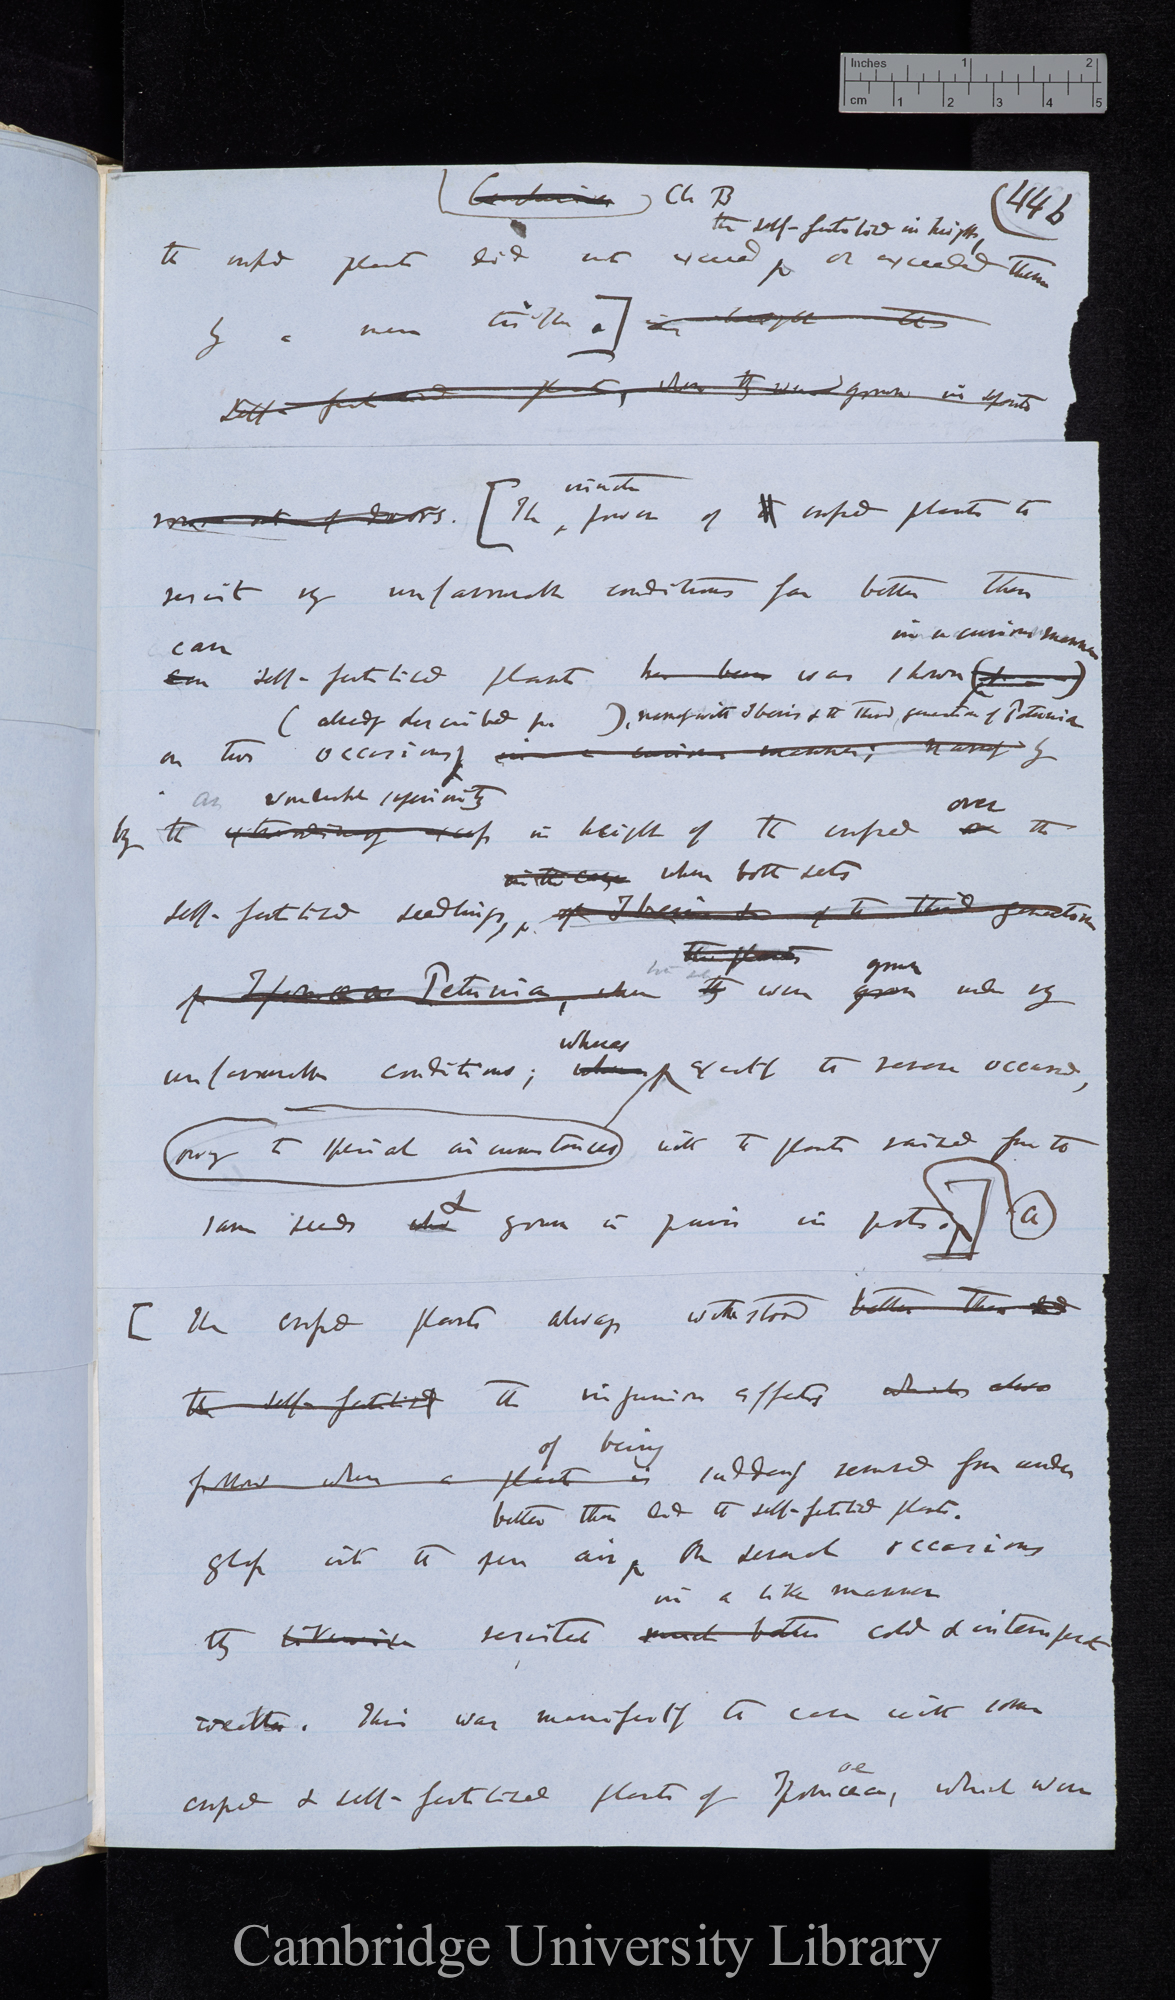 Inches 1 2
cm 1 2 3 4 5
Conclusion Ch B
446
the self-fertilised in height,
the crossed plants did not exceed or exceeded them
by a mere trifle.] in height the
self-fertilised plants, when they were grown in spots
rows out of doors. [The innate power of crossed plants to
resist unfavourable conditions far better than
can
self-fertilised plants has been was shown in a curious manner
(already described ), namely with Iberis & the third generation of Petunia
on two occasions, in a curious manner; namely by
wonderful superiority
by the extraordinary excess in height of the crossed over the
in the case when both sets
self-fertilised seedlings, of Iberis & of the third generation
the plants
of Ipomoea Petunia, when they were grown under very
whereas
unfavourable conditions; exactly the reverse occurred,
owing to special circumstances with the plants raised from the
same seeds & grown in pairs in pots. (a)
[ The crossed plants always withstood better than did
the self-fertilised the injurious effects which also
of being
follow when a plant is suddenly removed from under
better than did the self-fertilised plants.
glass into the open air. On several occasions
in a like manner
they likewise resisted much better cold & intemperate
weather. This was manifestly the case with some
crossed & self-fertilised plants of Ipomoea, which were
Cambridge University Library